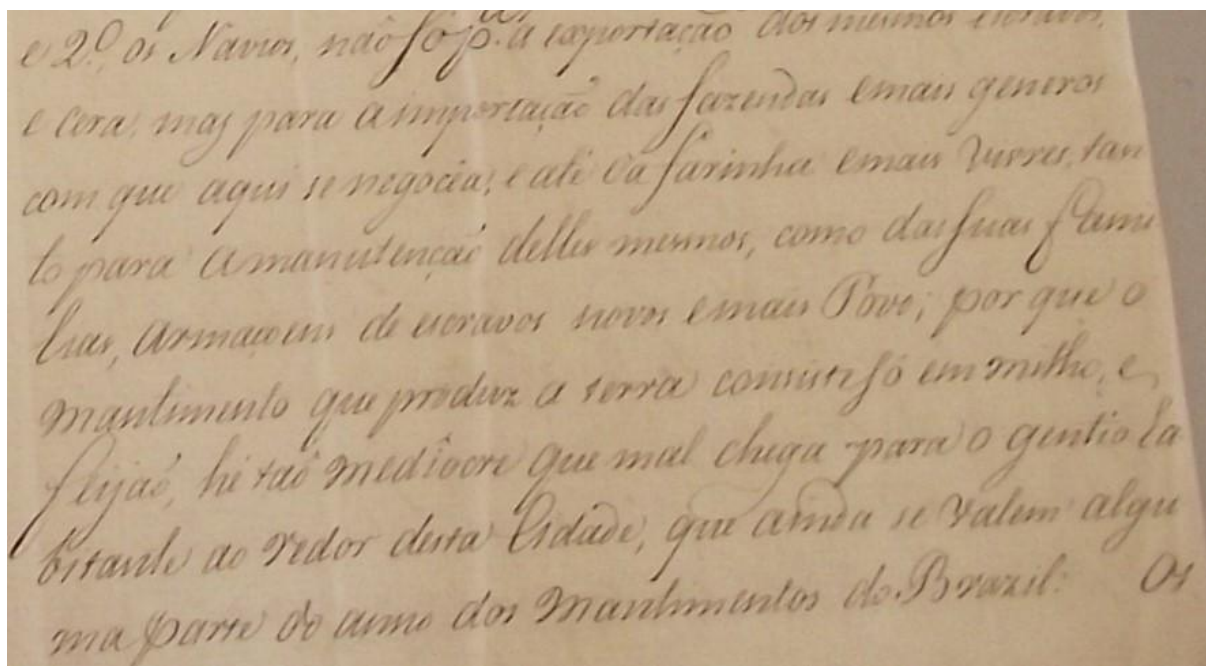 e 2.º os Navios, não só p.ª a exportação dos mesmos escravos,
e cera, mas para a importação das fazendas emais generos
com que aqui se negocêa, e até da farinha emais viveres, tan
to para amanutenção delles mesmos, como das suas fami
lias, Armazens de escravos novos emais Povo; por que o
mantimento que produz a terra consiste só em milho, e
feijaõ, hé taõ mediocre que mal chega para o gentio ha
bitante ao redor desta Cidade, que ainda se valem algu
ma parte do anno dos mantimentos do Brazil. Os